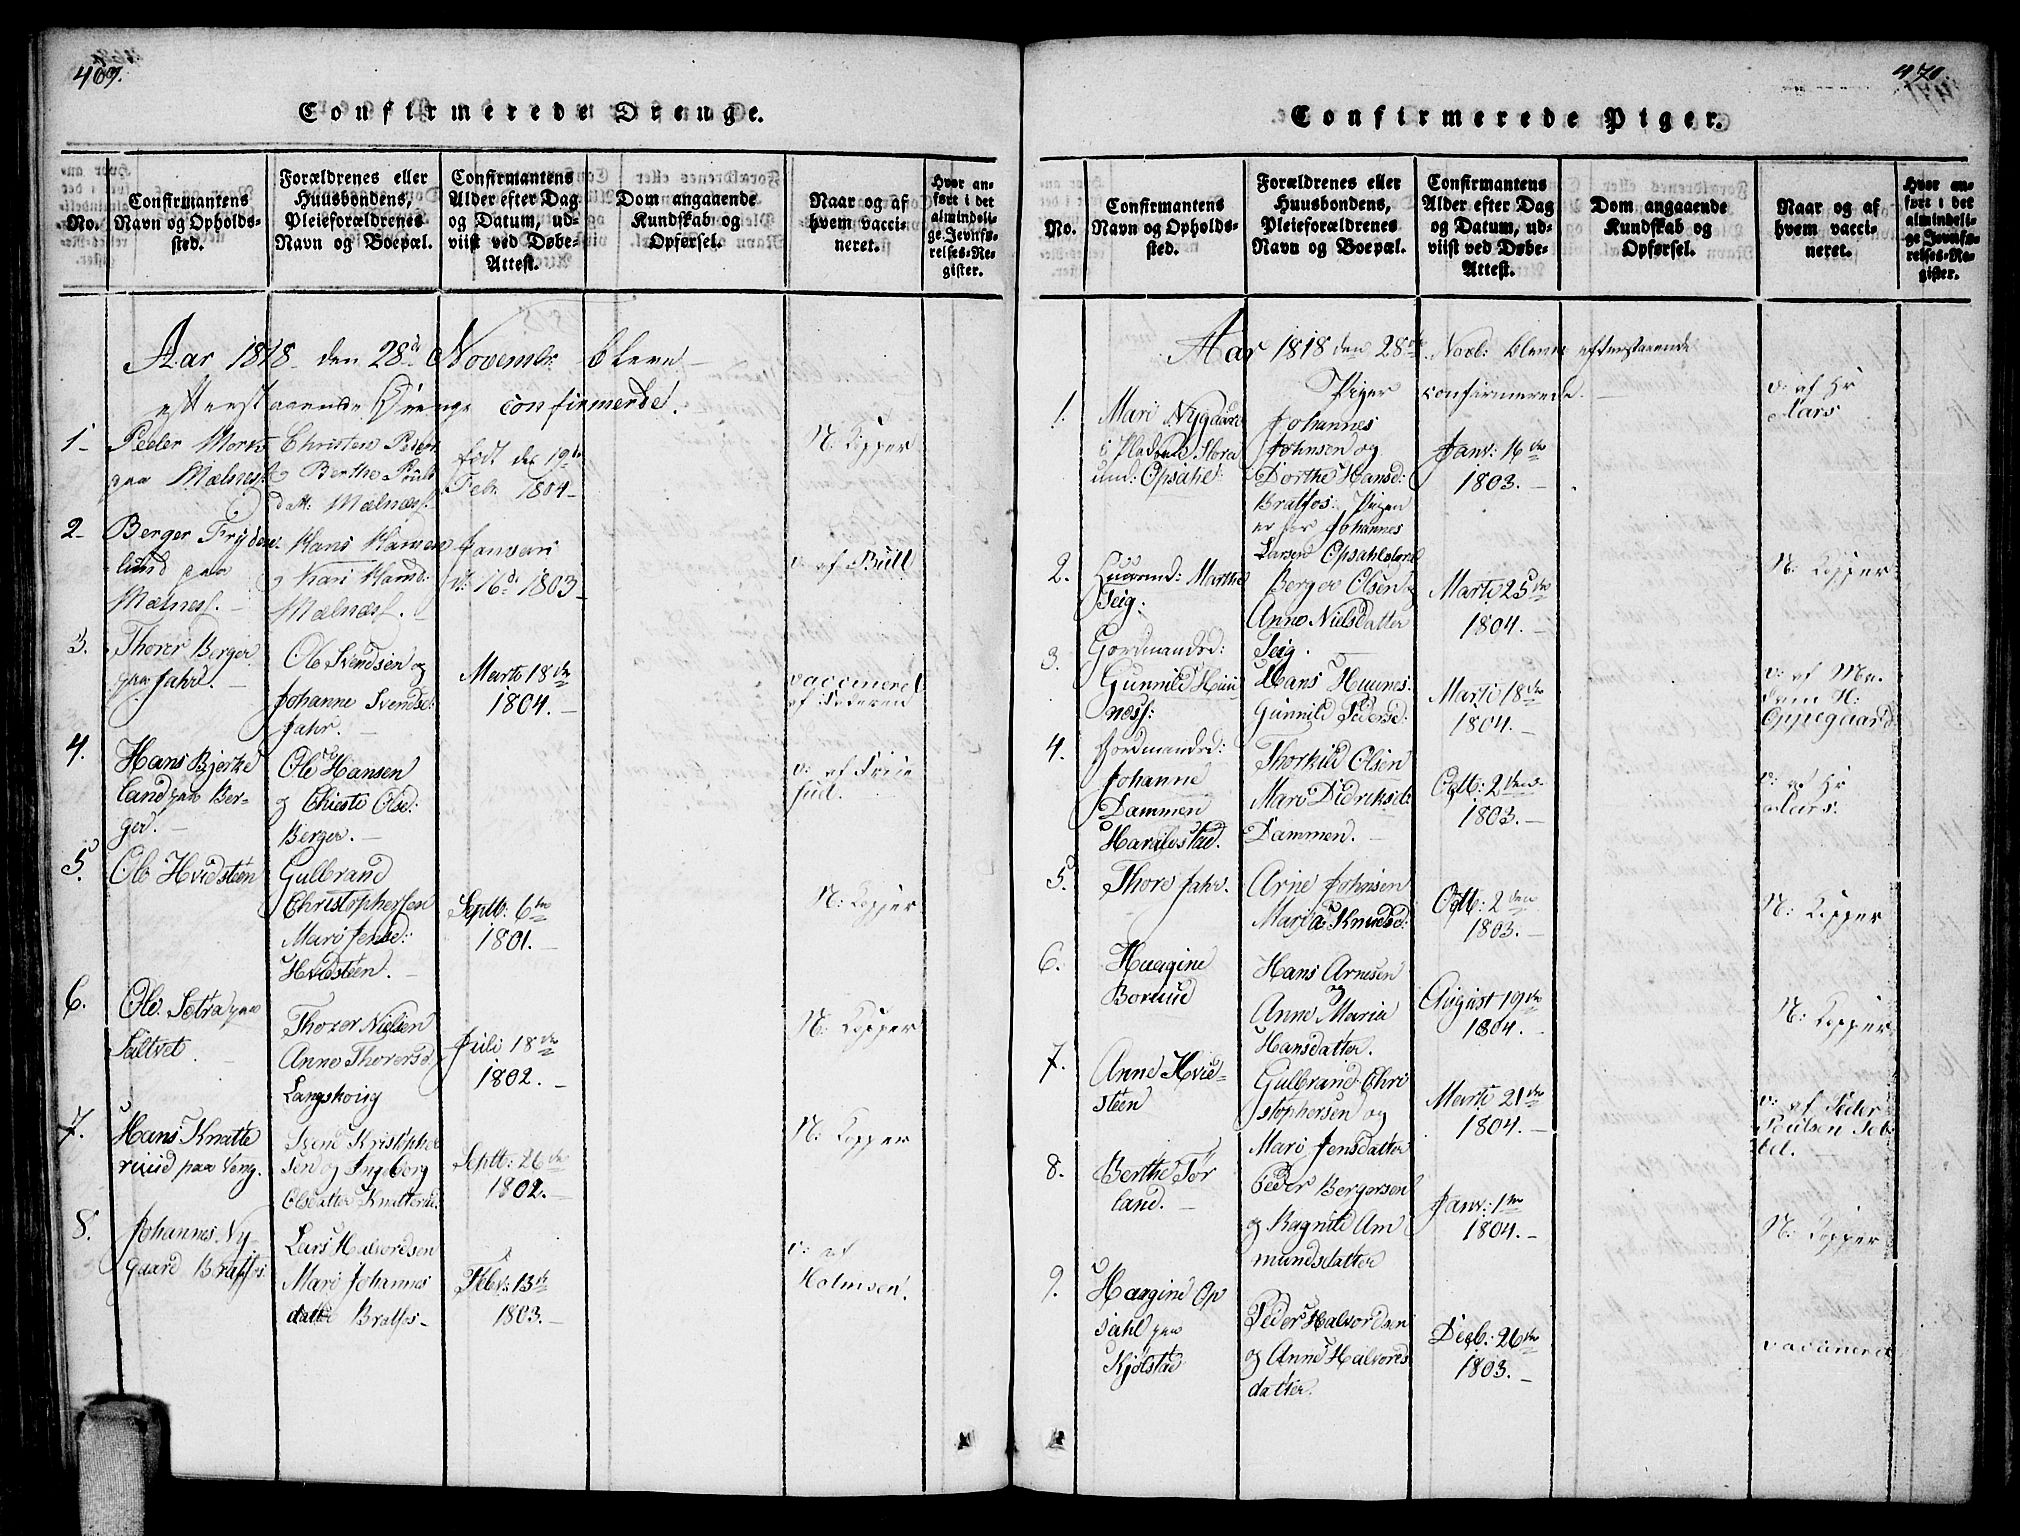 469.
Confirmerede Drenge.
No.
Confirmantens
Navn og Opholds-
sted.
Forældrenes eller
Huusbondens,
Pleieforældrenes
Navn og Boepæl.
Confirmantens
Alder efter Dag
og Datum, ud-
viist ved Døbe-
Attest.
Dom angaaende
Kundskab og
Opførsel.
Naar og af
hvem vacci-
neret.
Hvor an-
ført i det
almindeli-
ge Jevnfø-
relses-Re-
gister.
Aar 1818 den 28de Novembr. bleve
efterstaaende Drenge confirmerde.
1-
Peder Mork
paa Mælnes.
Christen Peder
og Berthe Poul
datt: Mælnæss.
født den 19de
Febr. 1804-
N: Kopper
2-
Berger Fryden-
lund paa
Mælness.
Hans Hansen
og Kari Hansd:
Mælnæss.
Januari
d: 16d. 1803-
v: af Bull
3.
Thorer Berger
paa Jahr.
Ole Svendsen og
Johanne Svendsd:
Jahr.
Marti 18de
1804.-
vaccineret
af
4.
Hans Bjerke
land paa Ber-
ger.-
Ole Hansen
og Chieste Olsd:
Berger.-
v: af
5.
Ole Hvidsteen
Gulbrand
Christophersen
Mari Jensd:
Hvidsteen.-
Septb: 6te
1801.-
N: Kopper
6.
Ole Sætra paa
Saltvet.
Thorer Nielsen
Anne Thorersd:
Langskovig
Juli 18de
1802.-
N: Kopper
7.
Hans Knatte
ruud paa Veng.
Svend Kristophe
sen og Ingeborg
Olsdatter Knatterud.
Septb: 26de
1802.-
N: Kopper
8.
Johannes Ny-
gaard Bratfos.
Lars Halvordsen
Mari Johannes
datter Bratfos-
Febr: 13de
1803.-
v: af
Holmsen.
470.
Confirmerede Piger.
No.
Confirmantens
Navn og Opholds-
sted.
Forældrenes eller
Huusbondens,
Pleieforældrenes
Navn og Boepæl.
Confirmantens
Alder efter Dag
og Datum, ud-
viist ved Døbe-
Attest.
Dom angaaende
Kundskab og
Opførsel.
Naar og af
hvem vacci-
neret.
Hvor an-
ført i det
almindeli-
ge Jevnfø-
relses-Re-
gister.
Aar 1818 den 28de Novb: bleve efterstaaende
Piger confirmerede.
1.
Mari Nygaard
i Pladsen Hora
und: Opsahl:
Johannes
Johnsen og
Dorthe Hansd:
Bratfos: Pigen
er for Johannes
Larsen Opsahl
Janv: 16de
1803.-
v: af Hr
Aars
2.
Marthe
Teig:
Berger Olsen og
Anne Nielsdatter
Teig.
Marti 25de
1804.-
N: Kopper
3.
Gordmandsd:
Gunnild Huu
næss:
Hans Huunes.
Gunnild Pedersd:
Marti 18de
1804.-
v: af Ma-
dam H:
Oppegaard
4.
Gordmandsd:
Johanne
Dammen
Haraldstad.
Thorkild Olsen
Mari Didriksd:
Dammen.-
Octb: 2den
1803.-
v: af Hr
Aars.
5.
Thore Jahr.
Arne Johnsen
Maria Knudsd:
Octb: 2den
1803.-
N: Kopper
6.
Huagine
Borrud
Hans Arnesen
og
Anne Maria
Hansdatter.
August 19de
1804.-
N: Kopper
7.
Anne Hvid-
steen
Gulbrand Chri
stophersen og
Mari Jensdatter
Marti 21de
1804.-
v: af Peder
Poulsen
8.
Berthe Tør
land.-
Peder Bergersen
og Ragnild Am
mundsdatter
Janv: 1te
1804.-
N: Kopper
9.
Haagine Op
sahl paa
Kjølstad
Peder Halvordsen
og Anne Halvors
datter.
Decb: 26de
1803.-
vaccineret